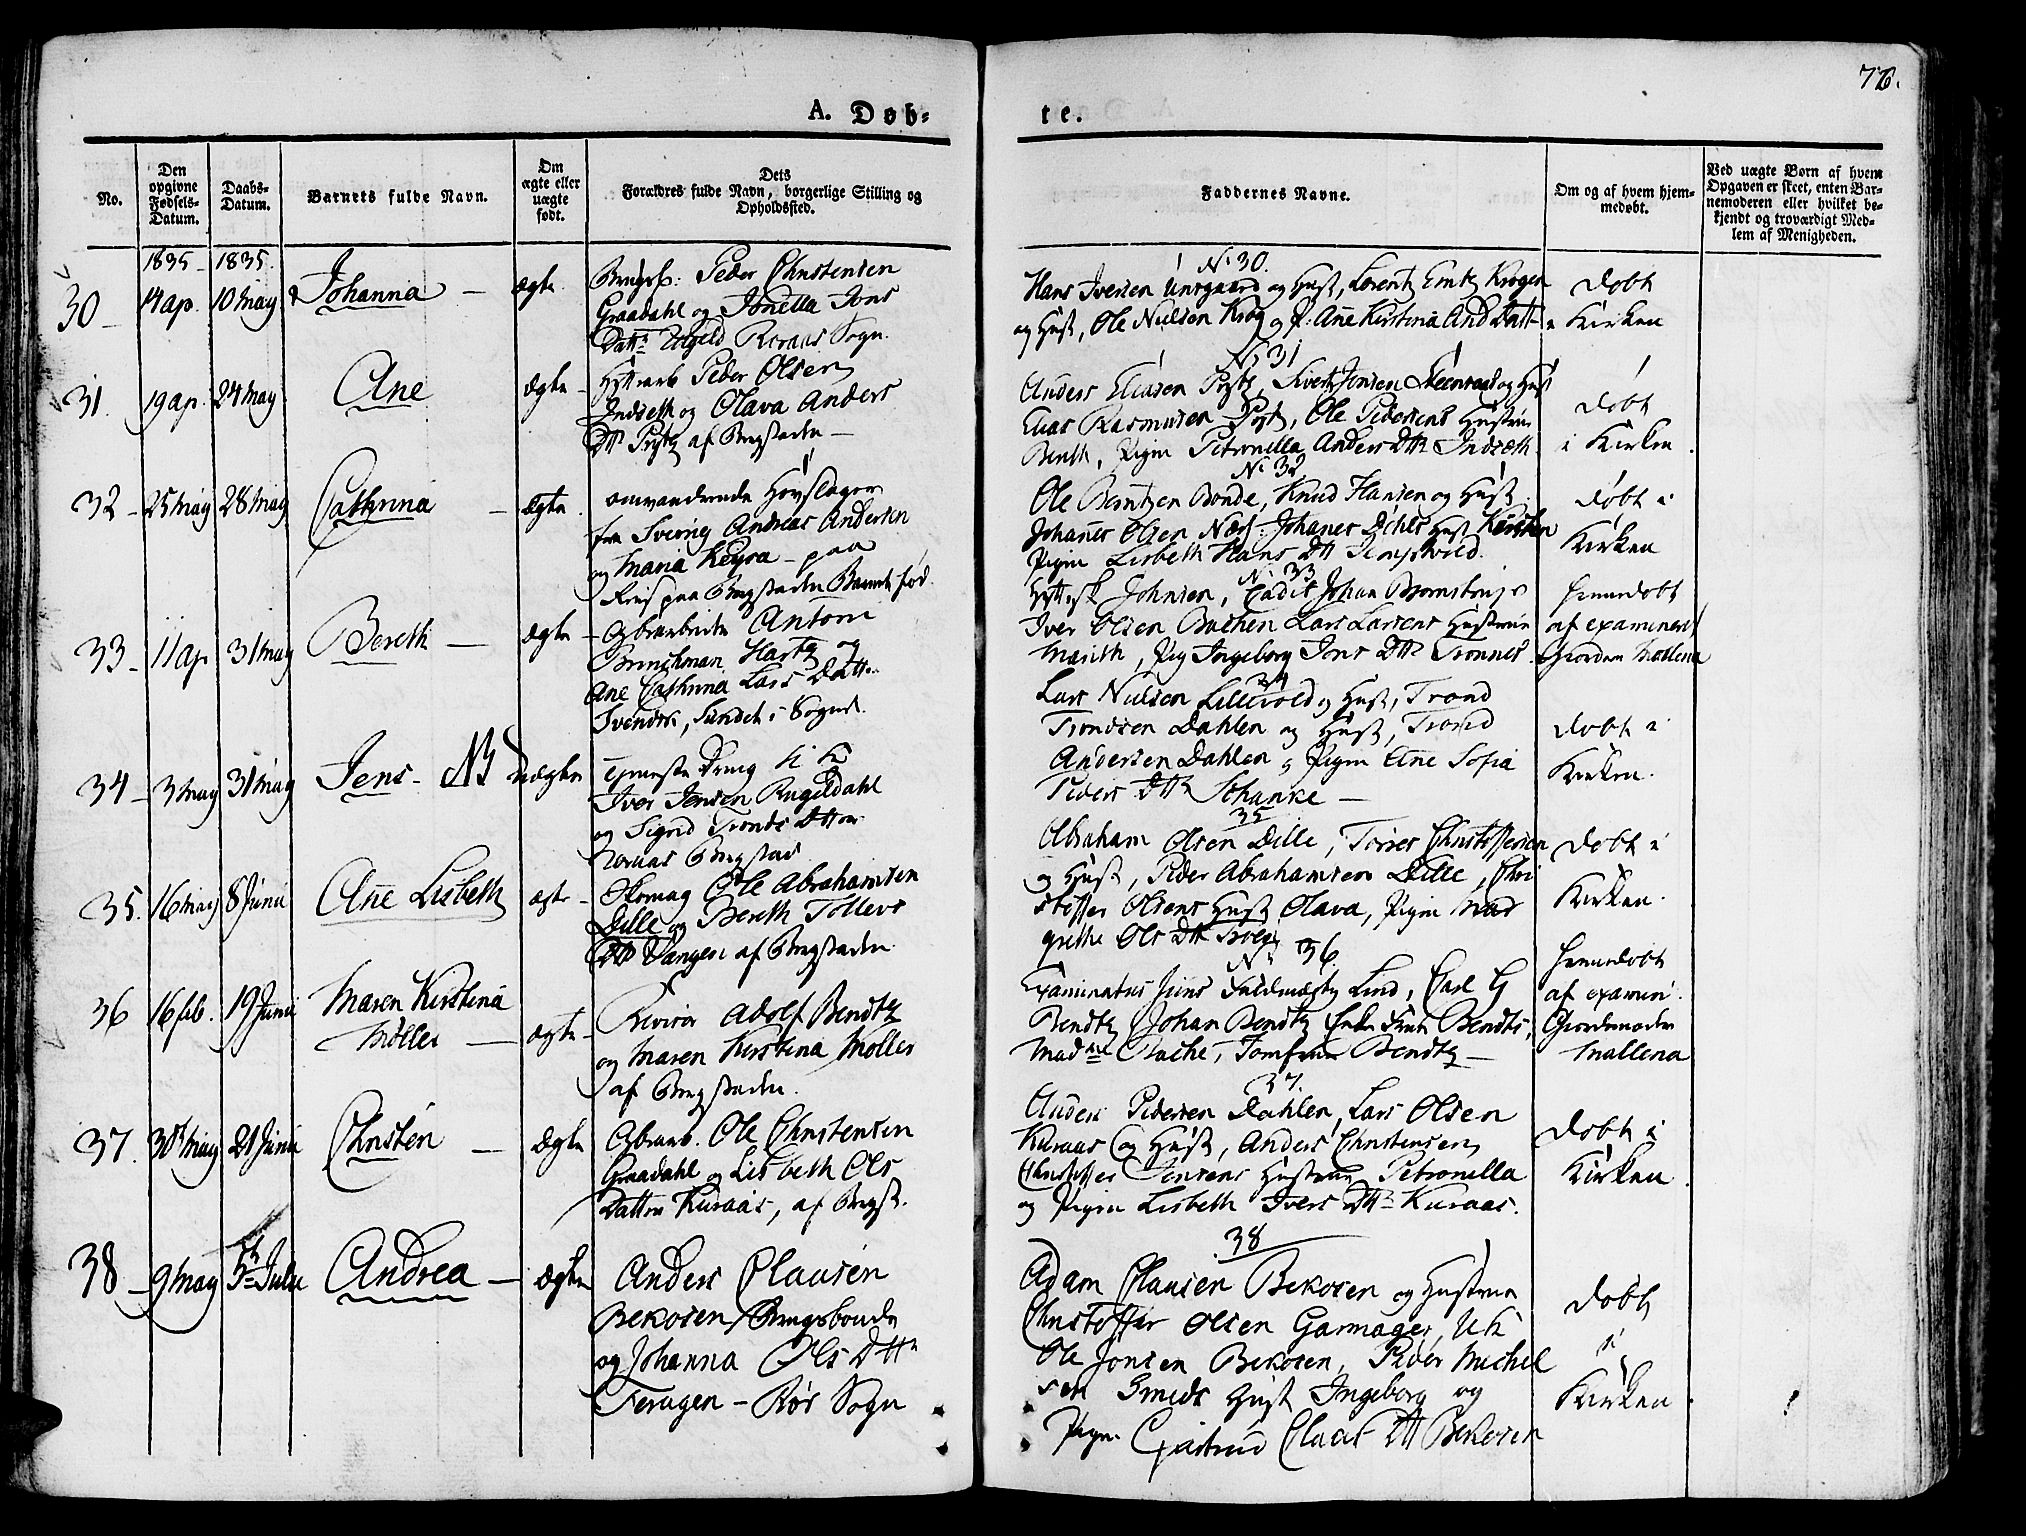 76.
A. Døb=
te.
No.
Den opgivne Fødsels-Datum.
Daabs-Datum.
Barnets fulde Navn.
Om ægte eller uægte født.
Dets Forældres fulde Navn, borgerlige Stilling og Opholdssted.
Faddernes Navne.
Om og af hvem hjemmedøbt.
Ved uægte Børn af hvem Opgaven er skeet, enten Barnemoderen eller hvilket bekjendt og troværdigt Medlem af Menigheden.
1835 1835.
30 14 ap. 10 may Johanna ægte
Peder Christensen
Graadahl og Jonella Jons
Datt Røraas Sogn.
No 30.
Hans Iversen og Hust, Lorentz Krogen
og Hust, Ole Nielsen Krog og P. Ane Kirstina And Datt
døbt
i Kirken
31. 19 ap. 24 may Ane ægte
Peder Olsen
Indseth og Olava Anders
Dtt Prytz af Bergstaden
No 31
Anders Eliasen Prytz, Sivert Jonsen og Hust
Elias Rasmusen Prytz, Ole Pedersens Hustrue
Bereth, Pigen Petronella Anders Dttr Indseth
døbt
i Kirken.
32 25 may 28 may Cathrina ægte
omvandrende
fra Sverrig Andreas Andersen
og Maria Keyra paa
Reise paa Bergstaden Barnet fød.
No 32
Ole Bentzen Bonde, Knud Hansen og Hust
Johannes Olsen Johanes Hust Kirsten
Pigen Lisbeth Hans Dtt
døbt i
Kirken
33 11 ap 31 may Bereth ægte
Anton
Brinchman Hartz og
Ane Cathrina Lars Datter
i Sognet.
No 33
Johnsen, Cadet Johan
Iver Olsen Bachen Lars Larsens Hustrue
Marith, Pig Ingeborg Jons Dtt Tronnes
hiemedøbt
af examineret
Giordem Mallena
34 3 may 31 may Jens NB Uægte
Tieneste Dreng
Iver Jensen Rugeldahl
og Sigrid Tronds Dtter
Røraas Bergstad
34
Lars Nielsen Lillevold og Hust, Trond
Trondsen Dahlen og Hust, Trond
Andersen Dahlen, Pigen Ane Sofia
Peders Dttr Schanke
døbt i
Kirken.
35. 16 may 8 Junii Ane Lisbeth ægte
Skomag Ole Abrahamsen
Dille og Bereth Tollevs
Dtt Vangen af Bergstaden
35
Abraham Olsen Dille, Christoffersen
og Hust, Peder Abrahamsen Dille, Chri
stoffer Olsens Hust Olava, Pigen Mar
grethe Ols Dtt
døbt i
Kirken.
36 16 feb. 19 Junii Maren Kirstina
Møller ægte
Revisor Adolf Bendtz
og Maren Kirstina Møller
af Bergstaden.
No 36.
Examinatus Juris Lind, Carl G
Bendtz Johan Bendtz Bendts,
Mad Bache, Jomfrue Bendtz
hiemedøbt
af examin.
Giordemoder
Mallena
37. 30 may 21 Junii Christen ægte
Ole Christensen
Graadahl og Lisbeth Ols
Datter Kuraas, af Bergst.
37.
Anders Pedersen Dahlen, Lars Olsen
Kuraas og Hust, Anders Christensen
Christoffer Jonsens Hustrue Petronella
og Pigen Lisbeth Ivers Dtt Kuraas.
døbt i
Kirken.
38 9 may 5 Julii Andrea ægte
Anders Clausen
Bekosen, Bergsbonde
og Johanna Ols Dtt
Feragen - Rør Sogn
38
Adam Clausen Bekosen og Hustrue
Christoffer Olsen Garmager, UK
Ole Jonsen Bekosen, Peder Michel
sen Smeds Hust Ingeborg og
Pigen Claus Dtt Bekosen
døbt
i
Kirken.